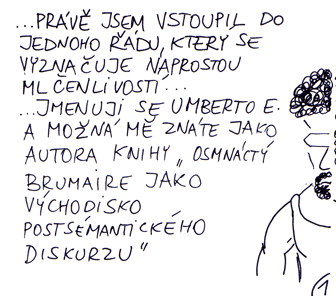 ...PRÁVĚ JSEM VSTOUPIL DO
JEDNOHO ŘÁDU, KTERÝ SE
VYZNAČUJE NAPROSTOU
MLČENLIVOSTÍ...
...JMENUJI SE UMBERTO E.
A MOŽNÁ MĚ ZNÁTE JAKO
AUTORA KNIHY „OSMNÁCTÝ
BRUMAIRE JAKO
VÝCHODISKO
POSTSÉMANTICKÉHO
DISKURZU"